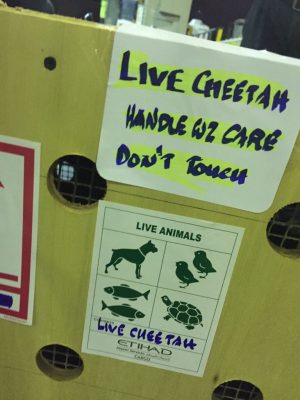 LIVE CHEETAH
HANDLE WZ CARE
DON'T TOUCH
LIVE ANIMALS
LIVE CHEETAH
ETIHAD
CARGO